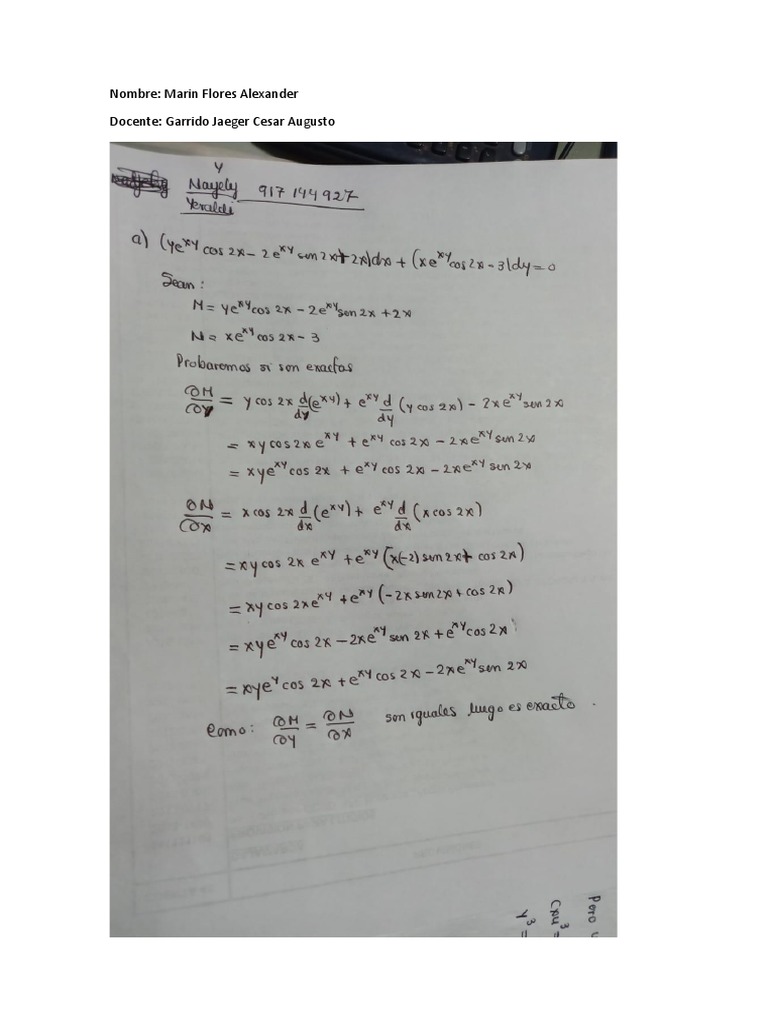 Nombre: Marin Flores Alexander
Docente: Garrido Jaeger Cesar Augusto
y
Nayely 917 144 927
Yeraldi
a) (ye^xy cos 2x - 2e^xy sen 2x + 2x)dx + (xe^xy cos 2x - 3)dy = 0
Sean:
M = ye^xy cos 2x - 2e^xy sen 2x + 2x
N = xe^xy cos 2x - 3
Probaremos si son exactas
∂M/∂y = y cos 2x d/dy (e^xy) + e^xy d/dy (y cos 2x) - 2xe^xy sen 2x
= xy cos 2x e^xy + e^xy cos 2x - 2xe^xy sen 2x
= xye^xy cos 2x + e^xy cos 2x - 2xe^xy sen 2x
∂N/∂x = x cos 2x d/dx (e^xy) + e^xy d/dx (x cos 2x)
= xy cos 2x e^xy + e^xy (x(-2) sen 2x + cos 2x)
= xy cos 2x e^xy + e^xy (-2x sen 2x + cos 2x)
= xye^xy cos 2x - 2xe^xy sen 2x + e^xy cos 2x
= xye^y cos 2x + e^xy cos 2x - 2xe^xy sen 2x
Como: ∂M/∂y = ∂N/∂x son iguales luego es exacto.
Pero
y^3 =